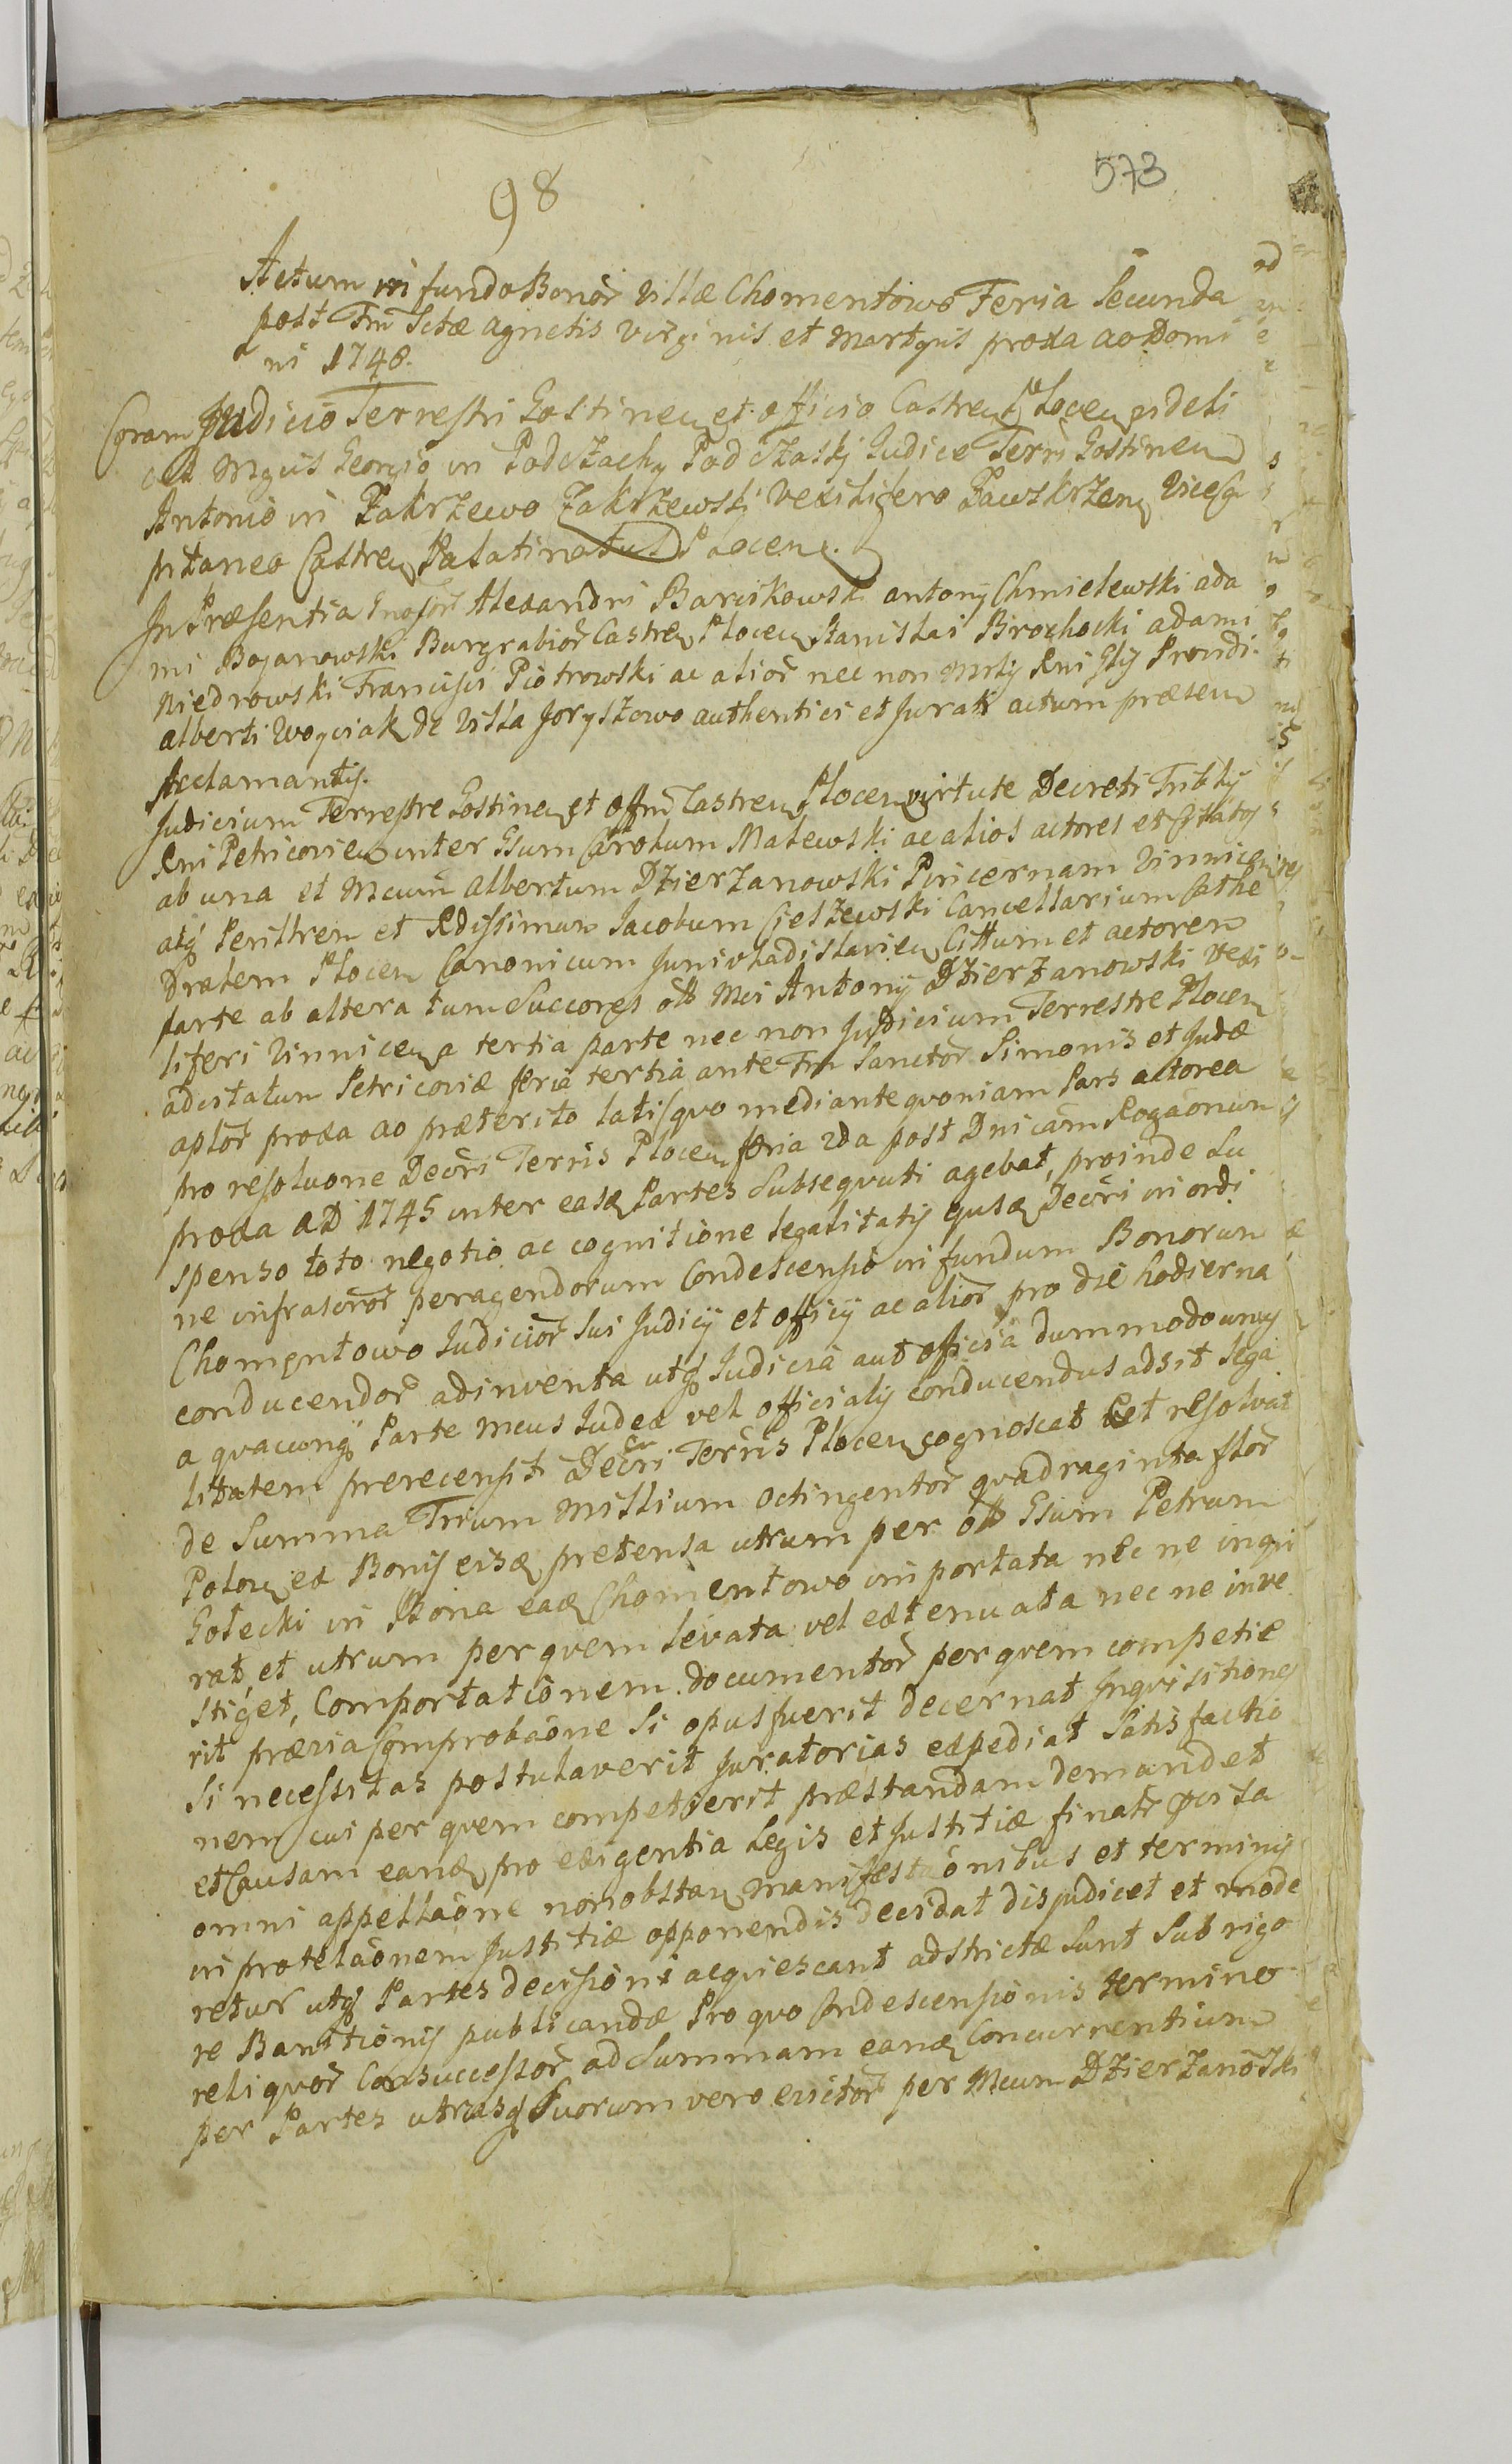 98
573
Actum in fundo Bonor Villæ Chomentowo Feria Secunda
post Fm Sctæ Agnetis Virginis et Martyris proxa ao Domi
ni 1748.
Coram Judicio Terrestri Gostinen et officio Castren Plocen videli
cet Mgcis Georgio in Podczachy Podczaski Judice Terris Gostinen
Antonio in Zakrzewo Zakrzewski Vexilifero Zawskrzen Viceca
pitaneo Castren Palatinatus Plocen.
In Præsentia Gnosor Alexandri Barcikowski antonij Chmielewski ada
mi Bojanowski Burgrabior Castren Plocen Stanislai Brochocki adami
Niedrowski Francisci Piotrowski ac alior nec non Mrlij Rni Glij Providi
alberti Woyciak de Villa Goryszewo authentici et Jurati actum præsen
Acclamantis.
Judicium Terrestre Gostinen et Offm Castren Plocen virtute Decreti Triblij
Rni Petricovien inter Gsum Carolum Malewski ac alios actores et Citatos
ab una et Mcum albertum Dzierzanowski Pincernam Vinnicen
atq Perillrem et Rdissimum Jacobum Cieszewski Cancellarium Cathe
dralem Plocen Canonicum Junivladislavien Cittum et actorem
parte ab altera tum Succores olt Mci Antonij Dzierzanowski vexi
liferi Vinnicen a tertia parte nec non Judicium Terrestre Plocen
adcitatum Petricoviæ feria tertia ante Fm Sanctor Simonis et Judæ
aplor proxa ao præterito lati quo mediante quoniam Pars actorea
pro resoluone Decri Terris Plocen feria 2da post Dnicam Rogaonum
proxa AD 1745 inter easq Partes Subsequuti agebat, proinde Su
spenso toto negotio ac cognitione legalitatis ejusq Decri in ordi
ne infrascror peragendorum Condescensio in fundum Bonorum
Chomentowo Judicior Sui Judicij et officij ac alior pro die hodierna
conducendor adinventa utq Judicia aut officia dummodo unus
a quacunq Parte Mcus Judex vel officialis conducendus adsit lega
litatem prerecensiti Decri Terris Plocen cognoscat et resolvat
de Summa Trium Millium Octingentor quadraginta flor
Polon ex Bonis eisq pretensa utrum per olt Gsum Petrum
Golecki in Bona eaq Chomentowo importata nec ne inqui
rat, et utrum per quem levata vel extenuata nec ne inve
stiget, Comportationem documentor per quem competie
rit prævia Comprobaone Si opus fuerit decernat Inquisitiones
Si necessitas postulaverit Juratorias expediat Satisfactio
nem cui per quem competierit præstandam demandet
et Causam eanq pro exigentia Legis et Justitiæ finalr
omni appellaone nonobstan manifestaonibus et terminis
in protelaonem Justitiæ opponendis decidat disjudicet et mode
retur utq Partes decisioni acquiescant adstrictæ sunt Sub rigo
re Bannitionis publicandæ Pro quo Condescensionis termino
reliquor Consuccessor ad Summam eanq Concurrentium
per Partes utrasq Suorum vero evictor per Mcum Dzierzanowski